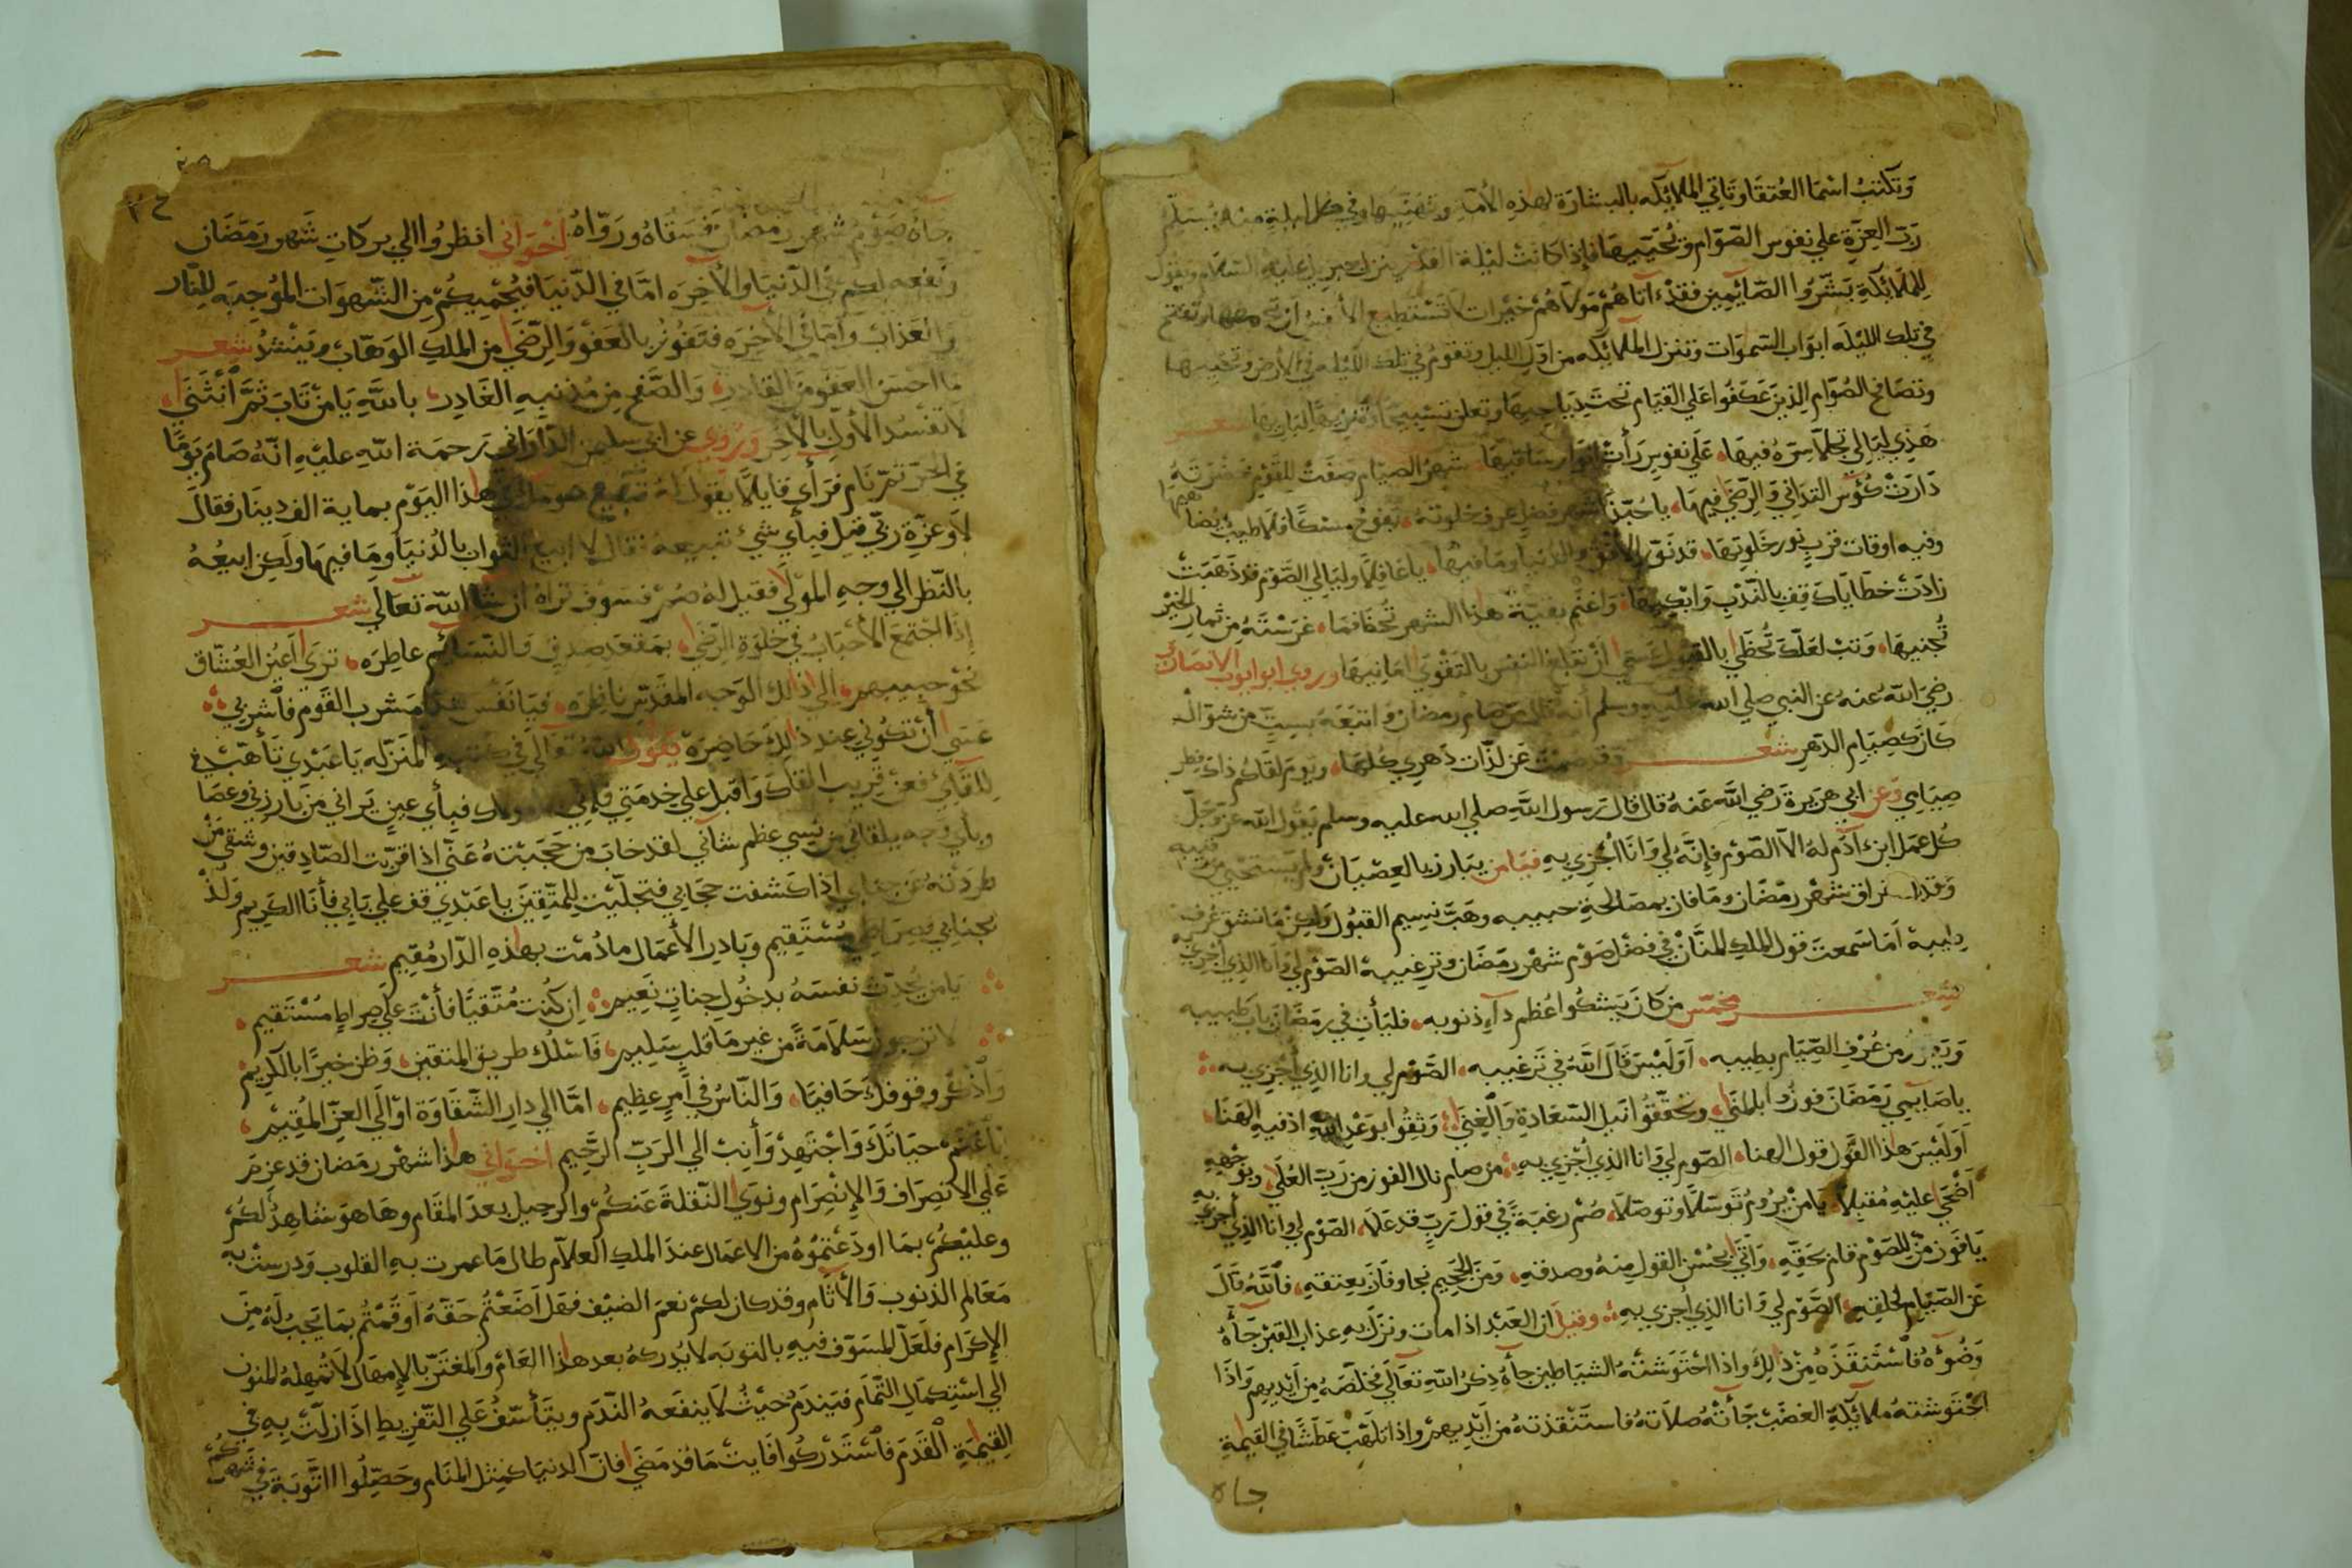 وتكتب اسما العتقا وتاتي الملائكه بالبشارة لهذه الأمة وتهنيها وفي كل ليلة منه يسلم
ربّ العزة علي نفوس الصّوّام ويُحَيّيها فإذا كانت ليلة القدر ينزل جبريل عليه السلام ويقول
للملائكة بشّروا الصّايمين فقد آتاهُم مولاهُم خيرات لا تستطيع الأنفس ان وتفتح
في تلك الليلَه ابواب السّموات وتنزل الملائكه من اول الليل وتقوم في تلك الليله في الأرض
وتصافح الصُوّام الذين عَكَفُوا علي القيام
هَذِي ليَالي تجلّا سِرّهُ فيهَا، علَي نفوسٍ رأت انوار ساقيهَا، شهرُ الصيام صَفَت للقوم
دَارَتْ كُؤس التدَاني والرّضَا فيهَا، يا حُبّذا شهر فضلٍ عرف خلوته، يفوح مسكًا
وفيه اوقات قربٍ نور خَلوتِهَا، قد نوّر الأفق والدنيا ومَا فيهَا، يا غافلا وليالي الصّوم قد ذَهَبَتْ
زادَتْ خطاياكَ قِف بالنّدبِ وَابْكِيهَا، واغنم بقيّة هذا الشهر تُحظَا فما، غَرَسْتَهُ من ثمار الخيْر
تُجنيهَا، وَتبْ لعَلّكَ تُحظَي بالقبُول عَسَي، أنْ تبلغ النفس بالتقْوَي امَانيهَا وروي ابو ايوب الانصاري
رضيَ الله عنهُ عن النبي صلي الله عليه وسلم أنهُ قال من صامَ رمضان وَاتبَعَهُ بسِتٍّ من شوّال
كان كصِيَام الدّهرِ شعر وقد صمت عَن لذّات دَهري كُلِهَا، ويوم لقاكُم ذاك فِطر
صِيَامي وعن ابي هريرة رَضي الله عَنهُ قال قال رسول الله صلي الله عليه وسلم يقول الله عزّ وَجَلّ
كُل عمَل ابن آدَم لهُ الا الصّوم فإنّهُ لي وَانَا أجْزي بهِ فيَا من يبَارز بالعِصْيَان ولم يستحيي من
وقد فراق شهْر رمَضَان ومَا فاز بمصَالحةِ حبيبه وهَبّ نسِيم القبُول ولكن مَا نشق عُرف
طِيبهْ أمَا سَمعتَ قول الملكِ المنّان في فضْل صَوْم شهْر رمَضَان وترغيبهْ الصّوْم لي وَانَا الذي أجزي بهْ
شعر مخمّس من كان يَشكُوا عُظم دآءِ ذنوبه، فليَأتِ في رمَضَانَ بابَ طَبيبه
من عُرْفِ الصِّيَام بطِيبه، أوَلَيْسَ قَالَ اللهُ في تَرغيبه، الصَّوْم لي وانا الذي أجزي به
يا صَايمي رَمَضَان فوزُوا بالمنَي، وتحقّقوا نَيل السّعَادةِ وَالغِنَي، وَثِقُوا بوَعْدِ اللهِ اذ فيهِ الهَنَا،
أوَلَيْسَ هَذا القَول قول الهنا، الصّوم لي وَانا الذي أجزي بهِ، من صام نال الفوز من رَبّ العُلَي، وبوجههِ
أضْحَي عليْهِ مُقبلًا، يَا منْ يَرُومُ تَوسّلًا وتوصّلًا، صُمْ رغبَةً في قول رَبٍّ قد عَلَا، الصّوم لي وانا الذي أجزي به
يَا فَوز مَنْ للصَوْم قام بحَقّهِ، وَأتَي بحُسْن القول منهُ وصدقهِ، وَمنَ الجَحِيم نجا وفَاز بعِتقهِ، فاللّهُ قَالَ
عَن الصّيَام لخلقِهِ، الصّوْم لي وَانا الذي أجزي بهِ، وقيل ان العَبْد اذا مات ونزل بهِ عذاب القبْر جَآءهُ
وَضُوءهُ فاسْتَنقَذَهُ مِنْ ذَلِكَ واذا احْتَوَشتْهُ الشيَاطين جآءهُ ذِكرُ اللهِ تعَالَي فخلّصَهُ مِن أيْدِيهِم وَاذَا
احْتَوشته ملايكة الغضَب جَآءتْهُ صلاتهُ فاستَنْقذتهُ من أيْدِيهمْ واذا تلَهّبَ عَطَشًا في القيمة
جاه
٢٤
جاهُ صَوْم شهر رمضان فسَقاهُ ورَوّاهُ إخوَاني انظرُوا الي بركاتِ شَهر رَمَضَان
ونفعه لكم في الدّنيَا والآخرَه امّا في الدّنيَا فيُحْمِيكُمْ مِن الشّهوَات المُوْجبَه للنّار
وَالعَذاب وَامَا في الآخرَه فتَفُوزُ بالعَفْو وَالرّضَي من الملكِ الوَهّاب وينشدُ شعر
مَا احسَن العَفو من القادِرِ، وَالصَّفح من مُذنبهِ الغَادِر، بالله يَا مَنْ تَابَ ثمّ أنْثَنَي،
لا تفْسد الأوّل بالآخِر ورُوي عن ابي سليمن الدّاراني رحمَة الله عليْهِ انّهُ صَامَ يَومًا
في الحرّ ثمّ نَام فرَأي قايلًا يقول لهُ تبيع صومك في هَذا اليَوْم بماية الف دينَار فقالَ
لا وعزّة رَبّي قيل فبأي شيء تبيعهُ فقال لا ابيع الثّواب بالدُنيَا ومَا فيهَا ولَكِن ابيعُهُ
بالنّظر الي وَجهِ المَوْلَي فقيل لهُ صُمْ فسَوفَ تراهُ ان شا الله تعالَي شعر
إذا اجْتمعَ الأحْبَابُ في خلوَة الرّضَي، بمَقعَد صِدقٍ والنّسَائم عاطِرَه، ترَي أعيُن العُشّاق
نحْوَ حبيبهم، الي ذلك الوَجه المقدّس ناظِرَه، فيَا نَفْس هَذا مَشرب القَوْم فأشربي
عَسَي أنْ تكُوني عند ذلِكَ حَاضِرَهْ يقُول اللهُ تعَالَي في كتبهِ المُنَزّله يَا عَبْدي تَأهّبْ
للقَآئ فعَن قريب القاك وَاقبل علي خِدمَتِي فإنّي مَولاك فبأي عينٍ يَراني مَن بارزني وعَصَا
وبأي وَجه يلقاني من نسِي عظم شاني لقد خابَ من حَجَبْتهُ عَنّي اذا قرّبت الصّادِقين وشقي مَنْ
طردته عن جنابي إذا كشفت حجَابي فتجلّيْت للمتّقِين يا عَبْدي قف علي بَابي فأنَا الكَريم وَلُذْ
بجنابي مُسْتَقِيم وَبادِر الأعمَال ما دُمْت بهَذِهِ الدّار مُقيم شعر
يَا من يُحدّث نفسَهُ بدخُول جناتٍ نَعِيم، ان كُنت مُتّقيًّا فأنْتَ علَي صِراطٍ مُسْتَقيم،
لا ترجون سَلَامَةً من غير مَا قلبٍ سَلِيم، فاسْلُك طريق المتقين، وَظن خيرًا بالكريم
وَاذكُر وقوفكَ حَافيًا، وَالنّاسُ في أمرٍ عظِيم، امّا الي دار الشّقاوَة اوْ الَي العزّ المُقِيم،
فاغْتنم حيَاتَكَ وَاجْتَهِدْ وَأنِبْ الي الرَبّ الرّحِيم اخوَاني هَذا شهْر رمَضان قد عزمَ
علَي الانصِرَاف وَالإنْصِرَام ونوَي النّقلَة عَنكُمْ والرحيل بعدَ المَقَام وهَا هوَ شاهِدٌ لكُمْ
وعلَيْكُمْ بمَا اودَعْتمُوهُ من الاعمَال عندَ الملكِ العلّام طال مَا عمرت بهِ القلوب وَدرسَتْ بهِ
مَعَالم الذنوب وَالآثام وقد كان لكمْ نعمَ الضيْف فهَل أضَعْتُم حَقّهُ أوَ قُمْتُم بمَا يَجبُ لَهُ مِنَ
الإكرام فلعَلّ المسَوّف فيهِ بالتوبَه لا يُدركهُ بعد هَذا العَام وَالمغتَرّ بالإمهَال لَا تُمهِلهُ المنون
إلي استِكمَال التّمَام فيَندَمُ حَيْثُ لا يَنفَعهُ النّدَم ويتَأسّفُ علَي التّفريطِ اذَا زلّتْ بهِ في
القِيَمَةِ القَدَم فاسْتَدْركُوا فَايتَ مَا قد مَضَي فانّ الدنيَا كمِثل المنَام وحَصّلُوا التّوبَة في شهركُمْ